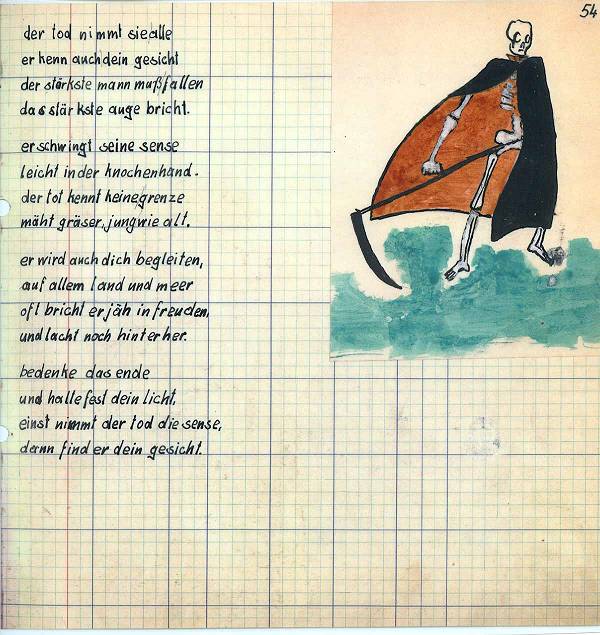 54
der tod nimmt sie alle
er kenn auch dein gesicht
der stärkste mann muß fallen
das stärkste auge bricht.
er schwingt seine sense
leicht in der knochenhand.
der tot kennt keine grenze
mäht gräser, jung wie alt.
er wird auch dich begleiten,
auf allem land und meer
oft bricht er jäh in freuden,
und lacht noch hinterher.
bedenke das ende
und halle fest dein licht,
einst nimmt der tod die sense,
dann find er dein gesicht.